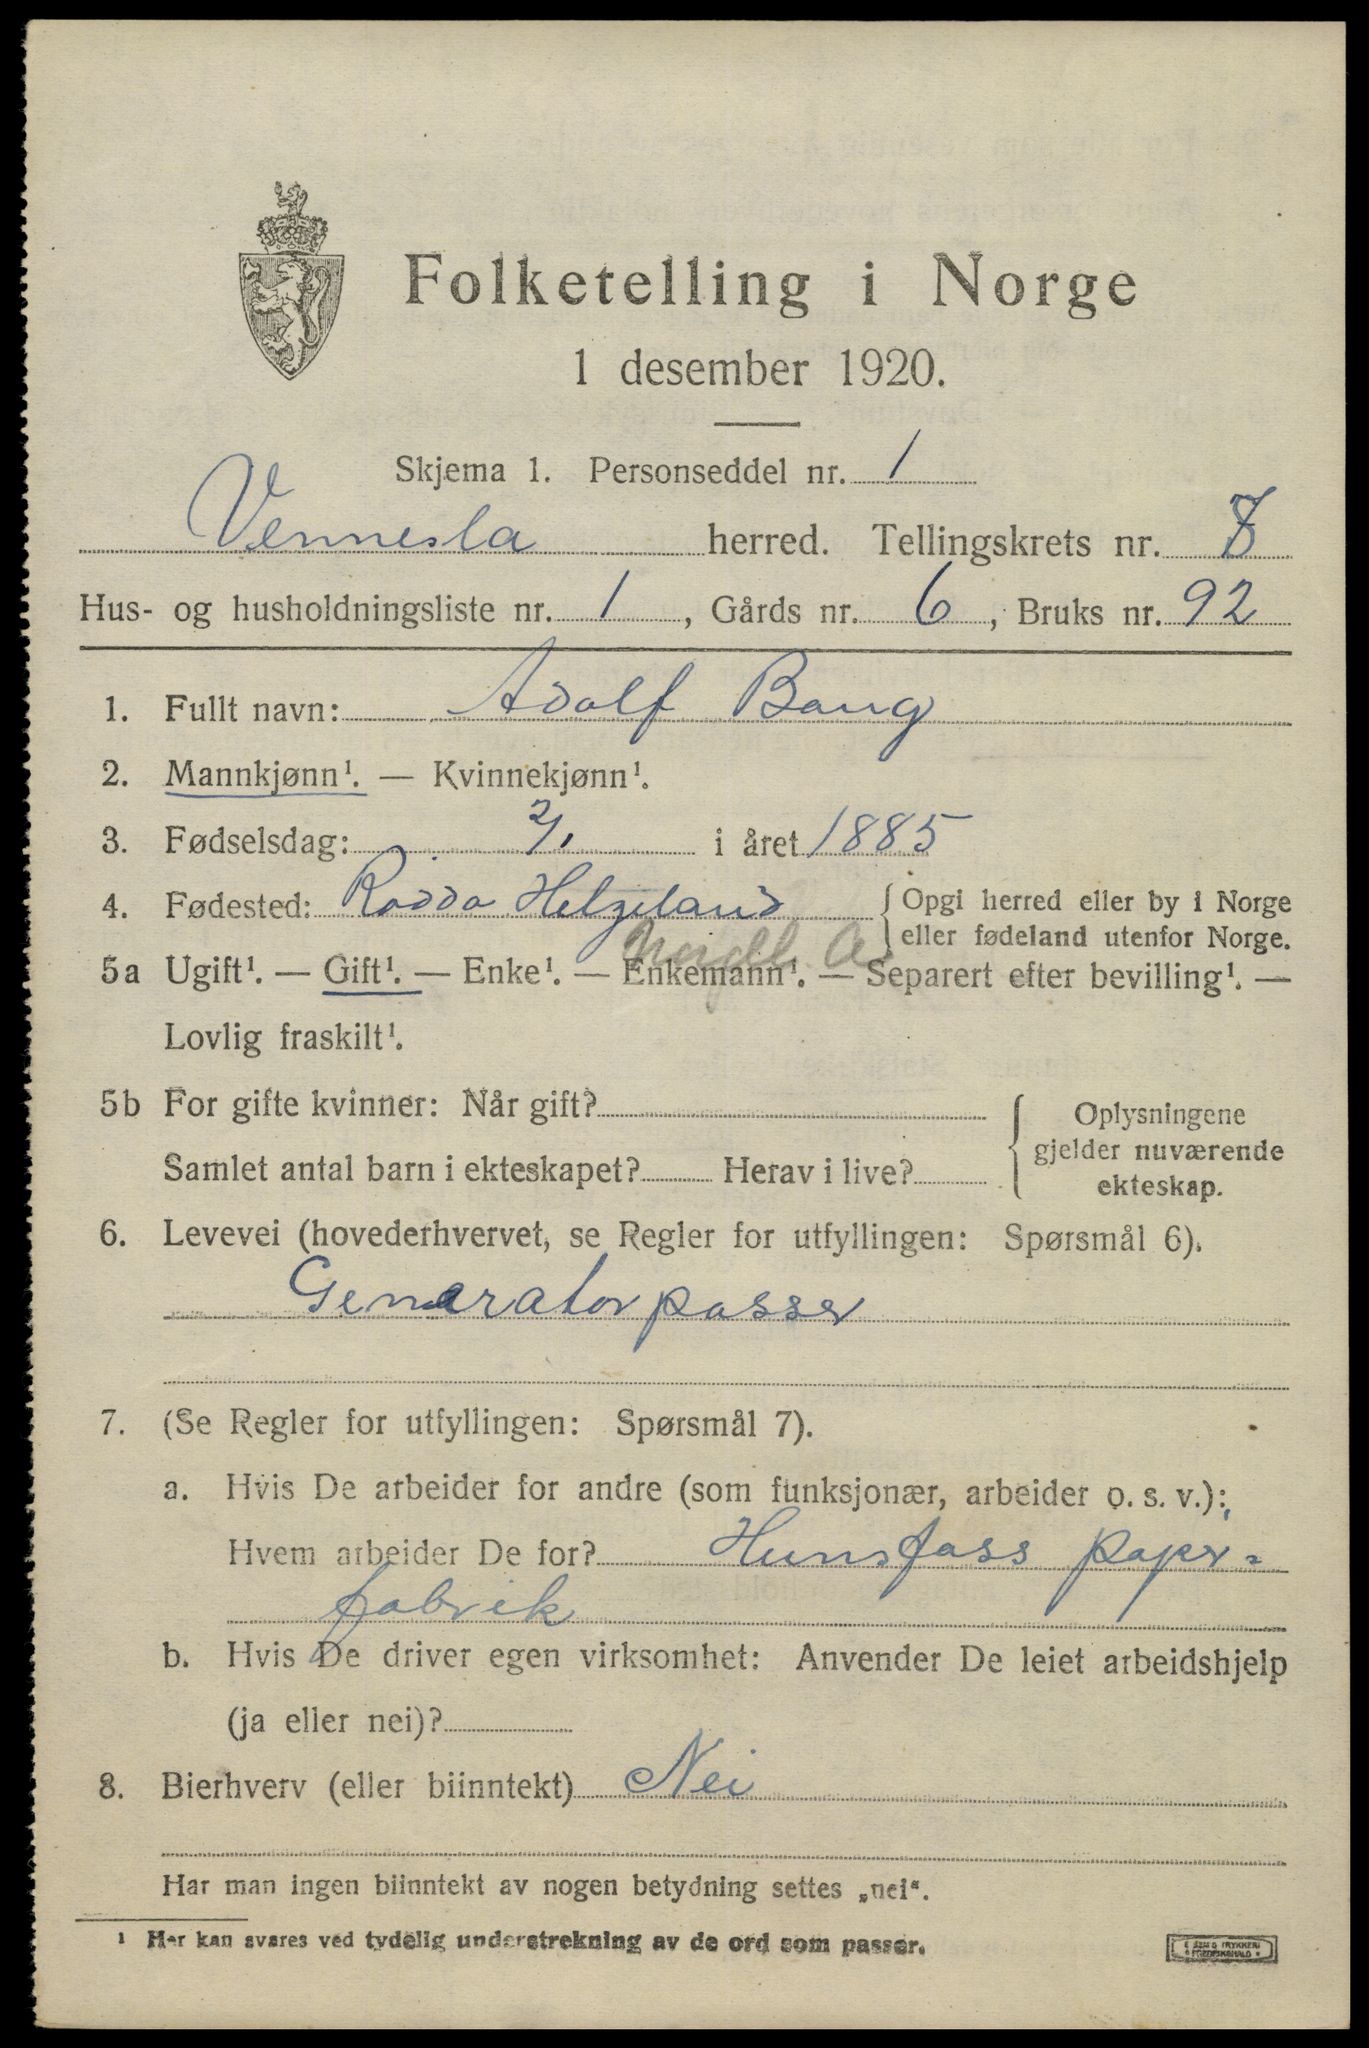 Folketelling i Norge
1 desember 1920.
Skjema 1. Personseddel nr. 1
Vennesla herred. Tellingskrets nr. 8
Hus- og husholdningsliste nr. 1, Gårds nr. 6, Bruks nr. 92
1. Fullt navn: Adolf Bang
2. Mannkjønn¹. — Kvinnekjønn¹.
3. Fødselsdag: 2/1 i året 1885
4. Fødested: Røddø Helgeland { Opgi herred eller by i Norge
eller fødeland utenfor Norge.
5a Ugift¹. — Gift¹. — Enke¹. — Enkemann¹. — Separert efter bevilling¹. —
Lovlig fraskilt¹.
5b For gifte kvinner: Når gift? { Oplysningene
gjelder nuværende
Samlet antal barn i ekteskapet? Herav i live?
ekteskap.
6. Levevei (hovederhvervet, se Regler for utfyllingen: Spørsmål 6).
Generatorpasser
7. (Se Regler for utfyllingen: Spørsmål 7).
a. Hvis De arbeider for andre (som funksjonær, arbeider o. s. v.):
Hvem arbeider De for? Hunsfoss papir-
fabrik
b. Hvis De driver egen virksomhet: Anvender De leiet arbeidshjelp
(ja eller nei)?
8. Bierhverv (eller biinntekt) Nei
Har man ingen biinntekt av nogen betydning settes „nei“.
¹ Her kan svares ved tydelig understrekning av de ord som passer.